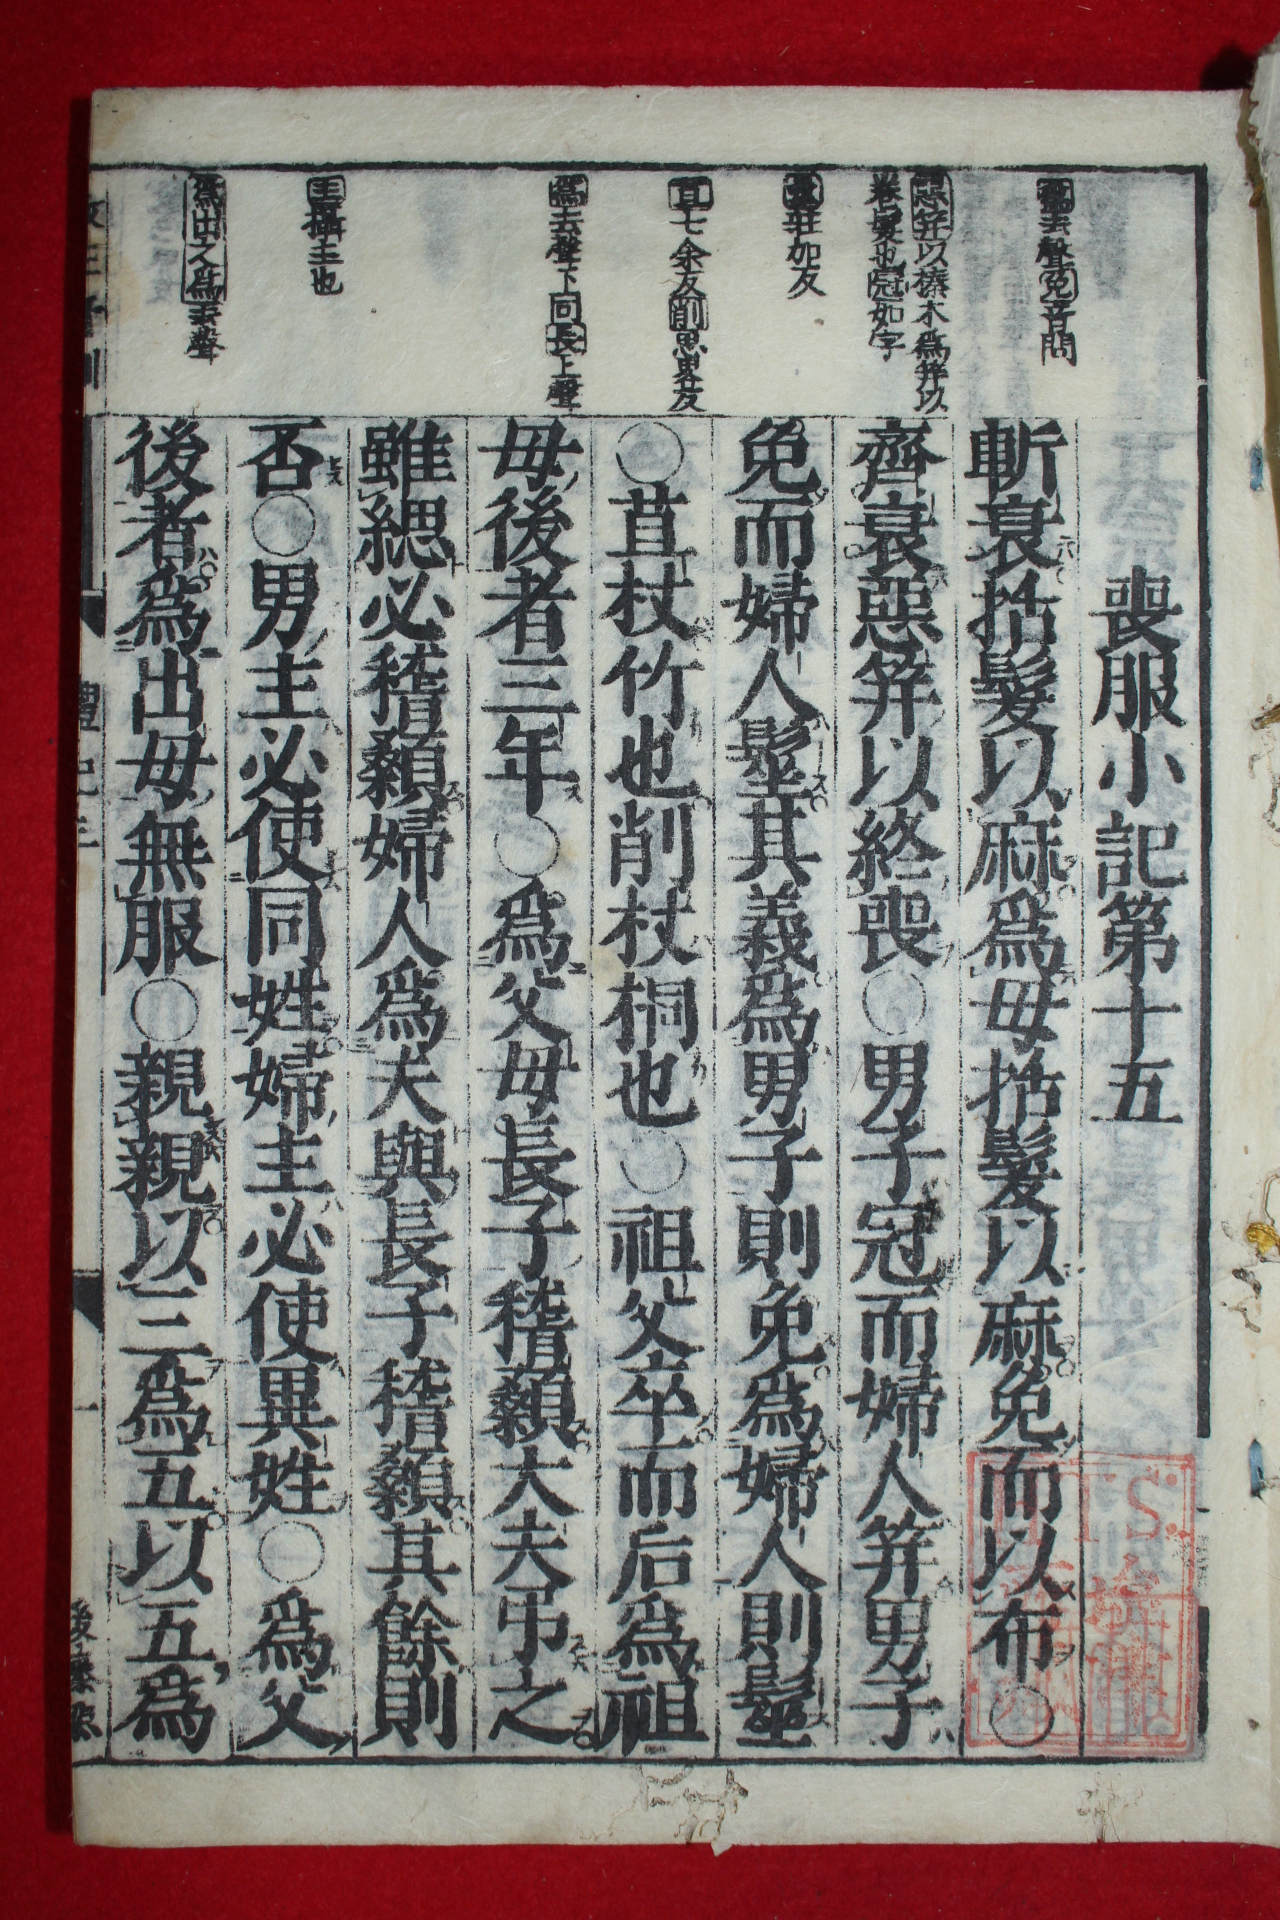 喪服小記第十五
斬衰括髮以麻爲母括髮以麻免而以布○
齊衰惡笄以終喪○男子冠而婦人笄男子
免而婦人髽其義爲男子則免爲婦人則髽
○苴杖竹也削杖桐也○祖父卒而后爲祖
母後者三年○爲父母長子稽顙大夫弔之
雖緦必稽顙婦人爲夫與長子稽顙其餘則
否○男主必使同姓婦主必使異姓○爲父
後者爲出母無服○親親以三爲五以五爲
爲去聲免音問
惡笄以榛木爲笄以
卷髮也冠如字
髽莊加反
苴七余反削思畧反
爲去聲下同長上聲
主攝主也
爲出之爲去聲
禮記三
一
後藤點